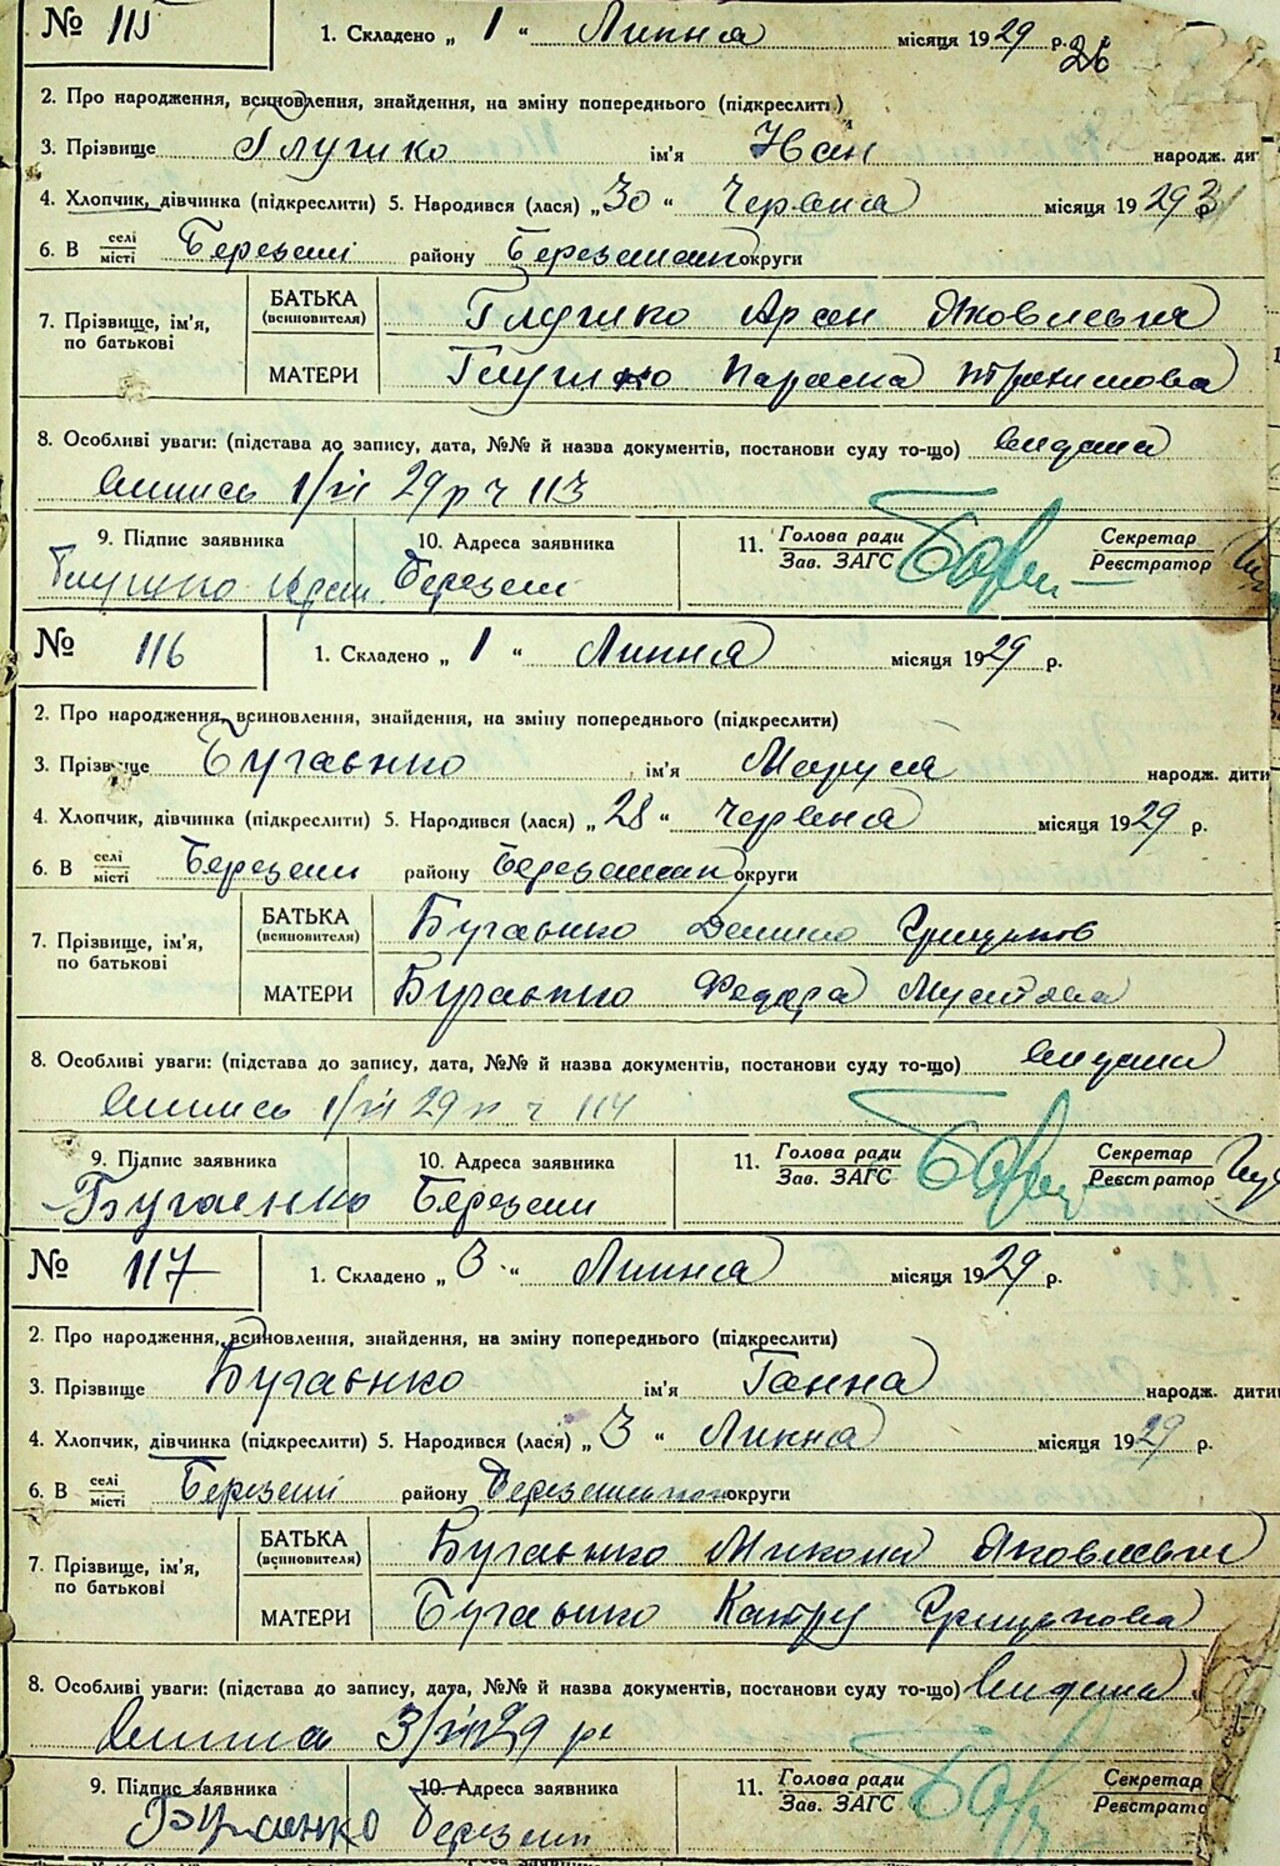 № 115 1. Складено „ 1 “ Липня місяця 1929 р. 26
2. Про народження, всиновлення, знайдення, на зміну попереднього (підкреслити)
3. Прізвище Глушко ім'я Іван народж. ди
4. Хлопчик, дівчинка (підкреслити) 5. Народився (лася) „ 30 “ Червня місяця 1929 р.
6. В селі місті Березені району округи
7. Прізвище, ім'я, по батькові БАТЬКА (всиновителя) Глушко Арсен Яковлевич
МАТЕРИ Глушко Параска
8. Особливі уваги: (підстава до запису, дата, №№ й назва документів, постанови суду то-що) видана
випись 1/VII 29 р ч 113
9. Підпис заявника 10. Адреса заявника 11. Голова ради Зав. ЗАГС Секретар Реєстратор
Глушко Березені
№ 116 1. Складено „ 1 “ Липня місяця 1929 р.
2. Про народження, всиновлення, знайдення, на зміну попереднього (підкреслити)
3. Прізвище Бугаєнко ім'я Маруся народж. дити
4. Хлопчик, дівчинка (підкреслити) 5. Народився (лася) „ 28 “ Червня місяця 1929 р.
6. В селі місті Березени району округи
7. Прізвище, ім'я, по батькові БАТЬКА (всиновителя) Бугаєнко
МАТЕРИ Бугаєнко Федора
8. Особливі уваги: (підстава до запису, дата, №№ й назва документів, постанови суду то-що) видана
випись 1/VII 29 р ч 114
9. Підпис заявника 10. Адреса заявника 11. Голова ради Зав. ЗАГС Секретар Реєстратор
Бугаенко Березени
№ 117 1. Складено „ 3 “ Липня місяця 1929 р.
2. Про народження, всиновлення, знайдення, на зміну попереднього (підкреслити)
3. Прізвище Бугаєнко ім'я Ганна народж. дити
4. Хлопчик, дівчинка (підкреслити) 5. Народився (лася) „ 3 “ Липня місяця 1929 р.
6. В селі місті Березені району округи
7. Прізвище, ім'я, по батькові БАТЬКА (всиновителя) Бугаєнко Микола Яковлевич
МАТЕРИ Бугаєнко Катря Грицькова
8. Особливі уваги: (підстава до запису, дата, №№ й назва документів, постанови суду то-що) видана
3/VII 29 р
9. Підпис заявника 10. Адреса заявника 11. Голова ради Зав. ЗАГС Секретар Реєстрато
Бугаенко Березени